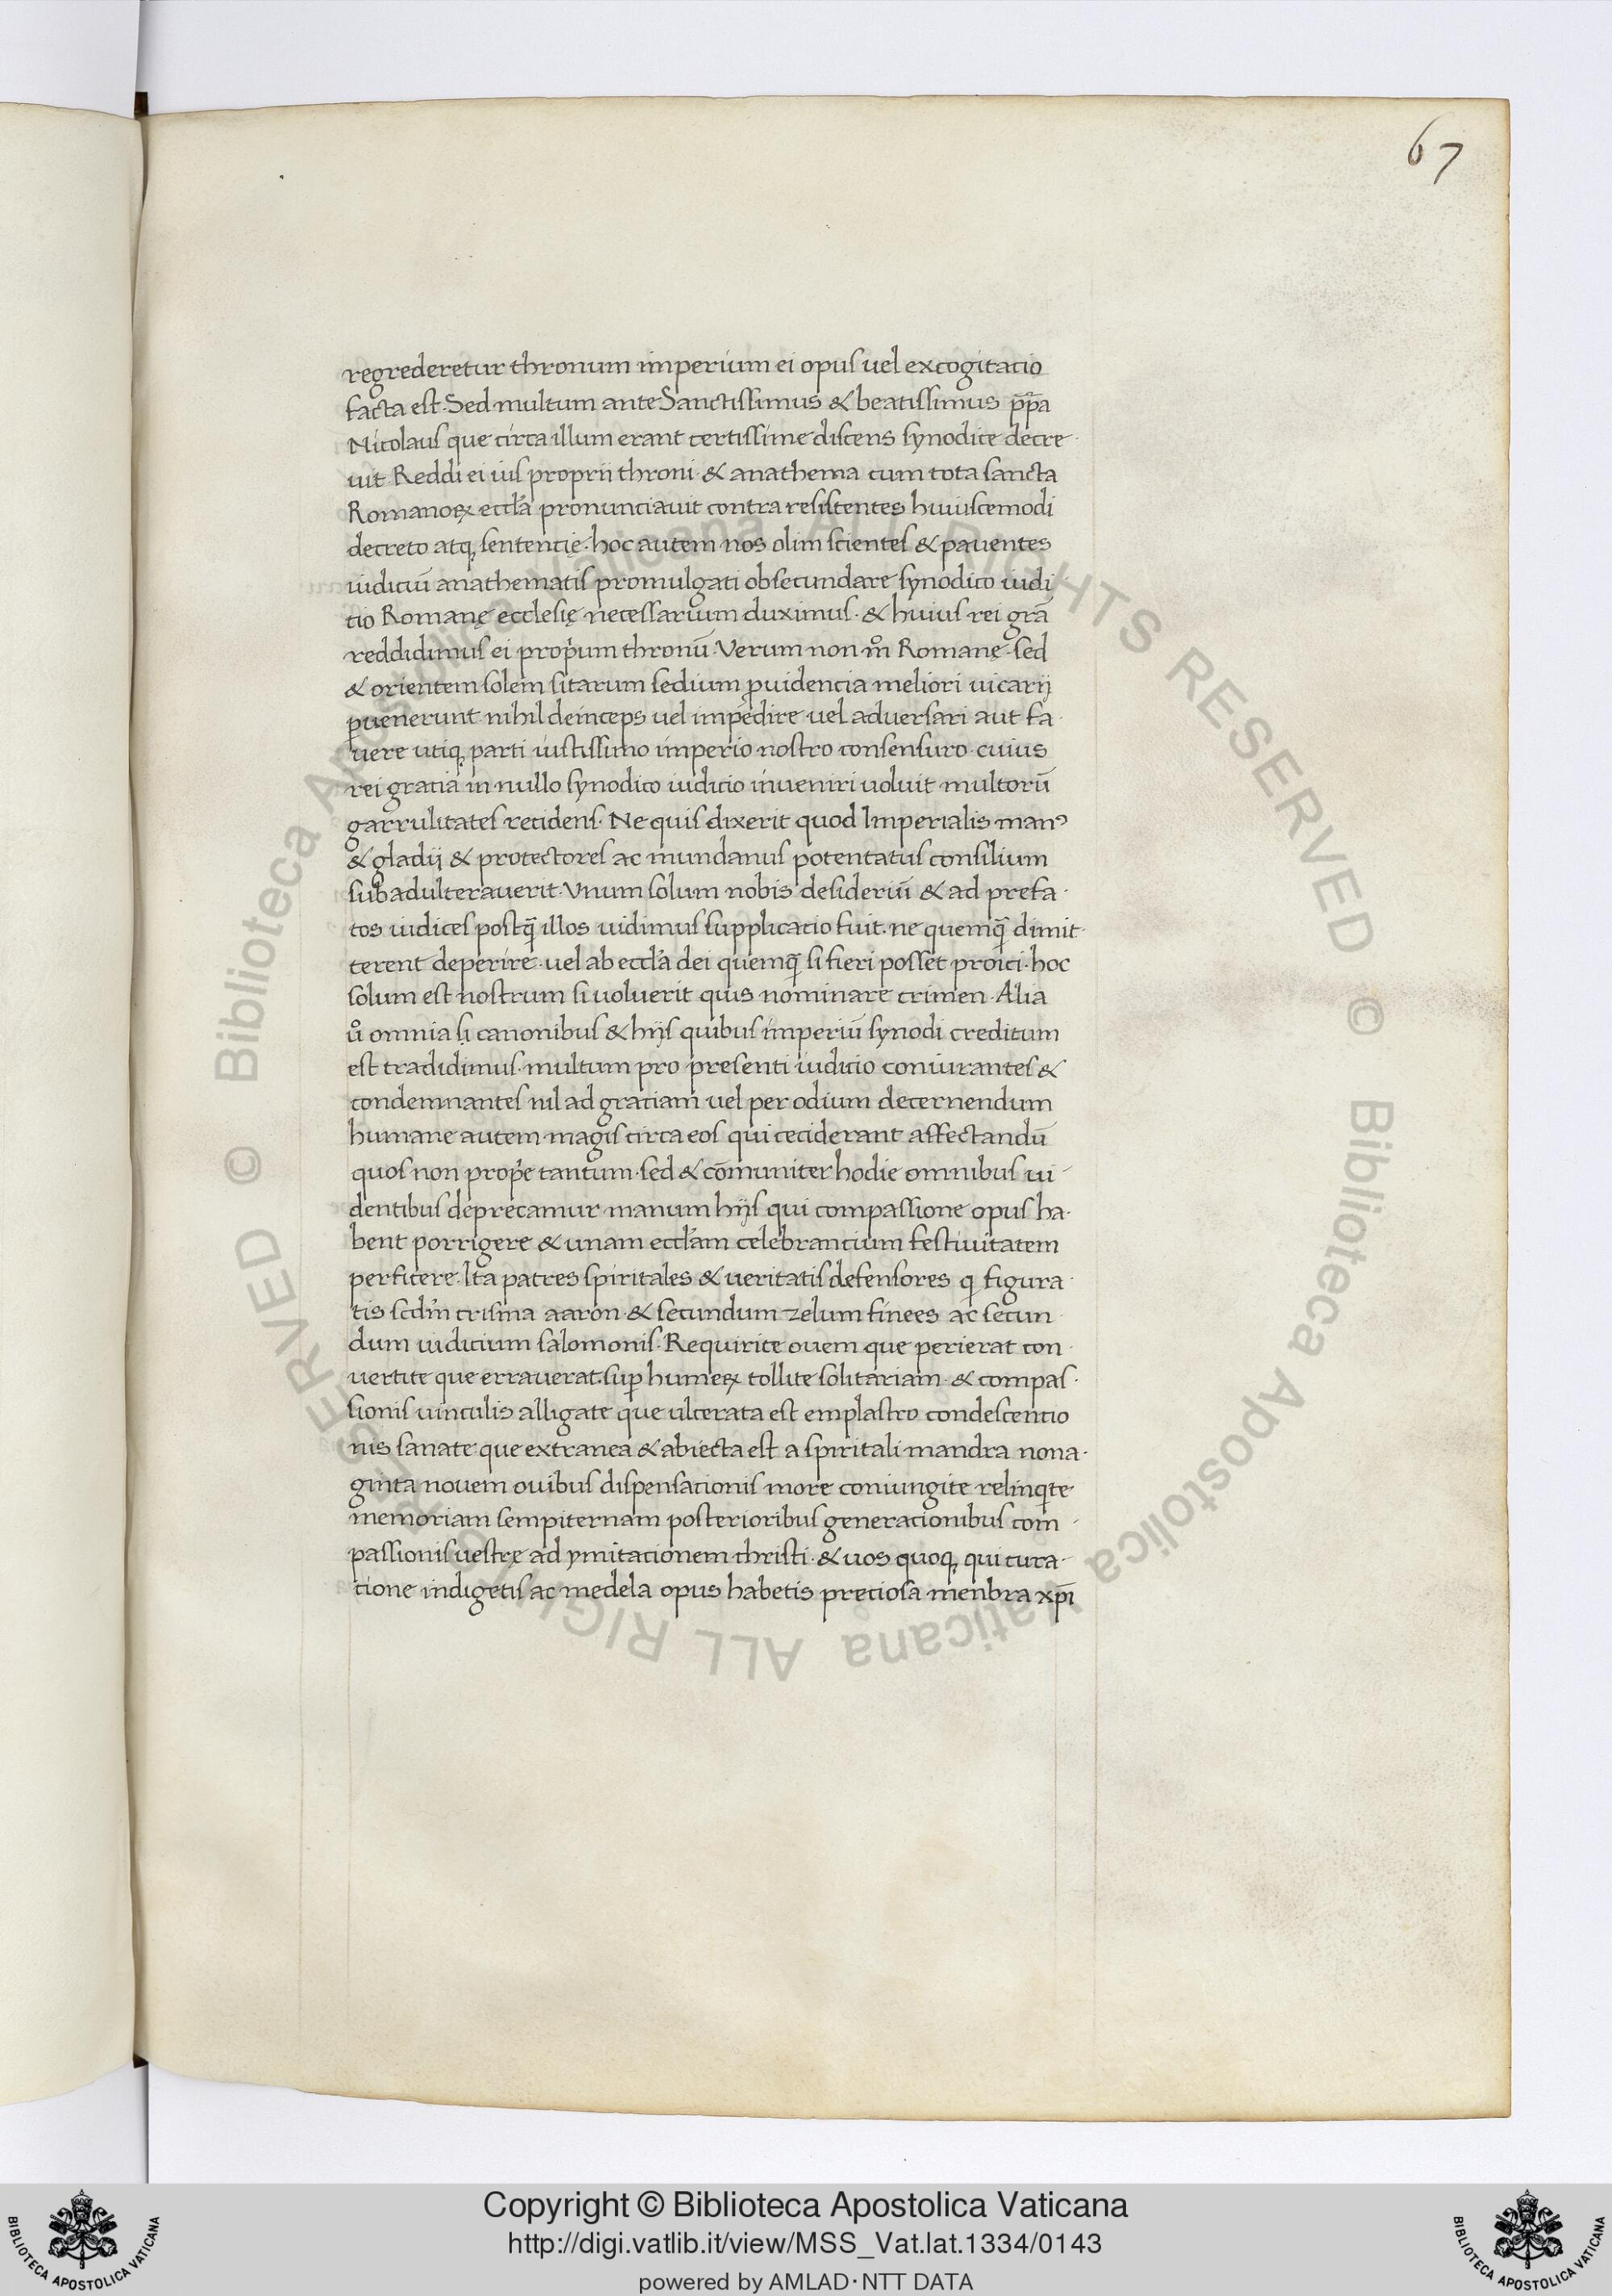 67
regrederetur thronum imperium ei opus vel excogitacio
facta est. Sed multum ante Sanctissimus & beatissimus pp̄a
Nicolaus que circa illum erant certissime discens synodice decre
uit Reddi ei ius proprii throni & anathema cum tota sancta
Romanoꝝ eccl̄a pronunciauit contra resistentes huiuscemodi
decreto atq; sentencię. hoc autem nos olim scientes & pauentes
iudiciū anathematis promulgati obsecundare synodico iudi
cio Romanę ecclesię necessarium duximus. & huius rei grā
reddidimus ei prop̄um thronū. Verum non m̊ Romanę sed
& orientem solem sitarum sedium ꝓuidencia meliori uicarij
ꝑuenerunt nihil deinceps uel impedire uel aduersari aut fa
uere utiq; parti iustissimo imperio nostro consensuro. cuius
rei gracia in nullo synodico iudicio inueniri uoluit multorū
garrulitates recidens. Ne quis dixerit quod Imperialis manꝰ
& gladij & protectores ac mundanus potentatus consilium
subadulterauerit. Vnum solum nobis desideriū & ad prefa
tos iudices postq̄ illos uidimus supplicatio fuit. ne quemq̄ dimit
terent deperire. uel ab eccl̄a dei quemq̄ si fieri posset proici. hoc
solum est nostrum si uoluerit quis nominare crimen. Alia
ů omnia si canonibus & hijs quibus imperiū synodi creditum
est tradidimus. multum pro presenti iudicio coniurantes &
condemnantes nil ad graciam uel per odium decernendum
humane autem magis circa eos qui ceciderant affectandū
quos non prop̄e tantum. sed & cōmuniter hodie omnibus ui
dentibus deprecamur manum hijs qui compassione opus ha
bent porrigere & unam eccl̄am celebrancium festiuitatem
perficere. Ita patres spiritales & ueritatis defensores q̇ figura
tis scd̄m crisma aaron. & secundum zelum finees ac secun
dum iudicium salomonis. Requirite ouem que perierat con
uertite que errauerat. suꝑ humeꝝ tollite solitariam & compas
sionis uinculis alligate que ulcerata est emplastro condescencio
nis sanate que extranea & abiecta est a spiritali mandra nona
ginta nouem ouibus dispensationis more coniungite relinq̇te
memoriam sempiternam posterioribus generacionibus com
passionis uestrę ad ymitacionem christi. & uos quoq; qui cura
cione indigetis ac medela opus habetis preciosa menbra xp̄i
© Biblioteca Apostolica Vaticana ALL RIGHTS RESERVED © Biblioteca Apostolica Vaticana ALL RIGHTS RESERVED
Copyright © Biblioteca Apostolica Vaticana
http://digi.vatlib.it/view/MSS_Vat.lat.1334/0143
powered by AMLAD·NTT DATA
BIBLIOTECA APOSTOLICA VATICANA
BIBLIOTECA APOSTOLICA VATICANA